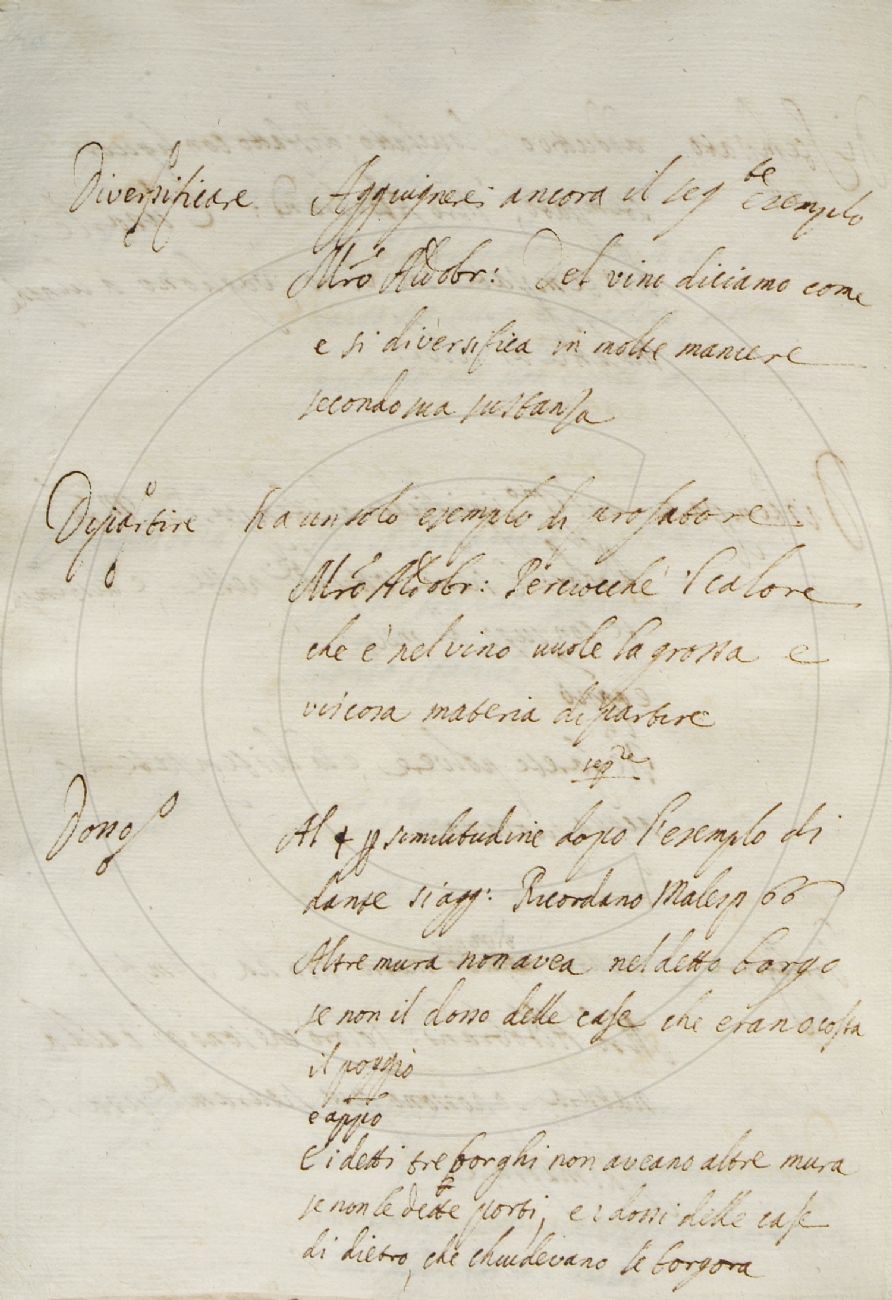 Diversificare Aggiugnerei ancora il seg.te esempio
Mro Aldobr: Del vino diciamo come
e si diversifica in molte maniere
secondo sua sustanza
Dispartire ha un solo esempio di
Mro Aldobr: Perciocche 'l calore
che è nel vino vuole la grossa e
viscosa materia dispartire
seg.te
Dosso Al § p similitudine dopo l'esempio di
dante si agg: Ricordano Malesp 66
Altre mura non avea nel detto borgo
se non il dosso delle case che eran acosta
il poggio
e appo
E i detti tre borghi non aveano altre mura
se non le dette porti, e i dossi delle case
di dietro, che chiudevano le borgora